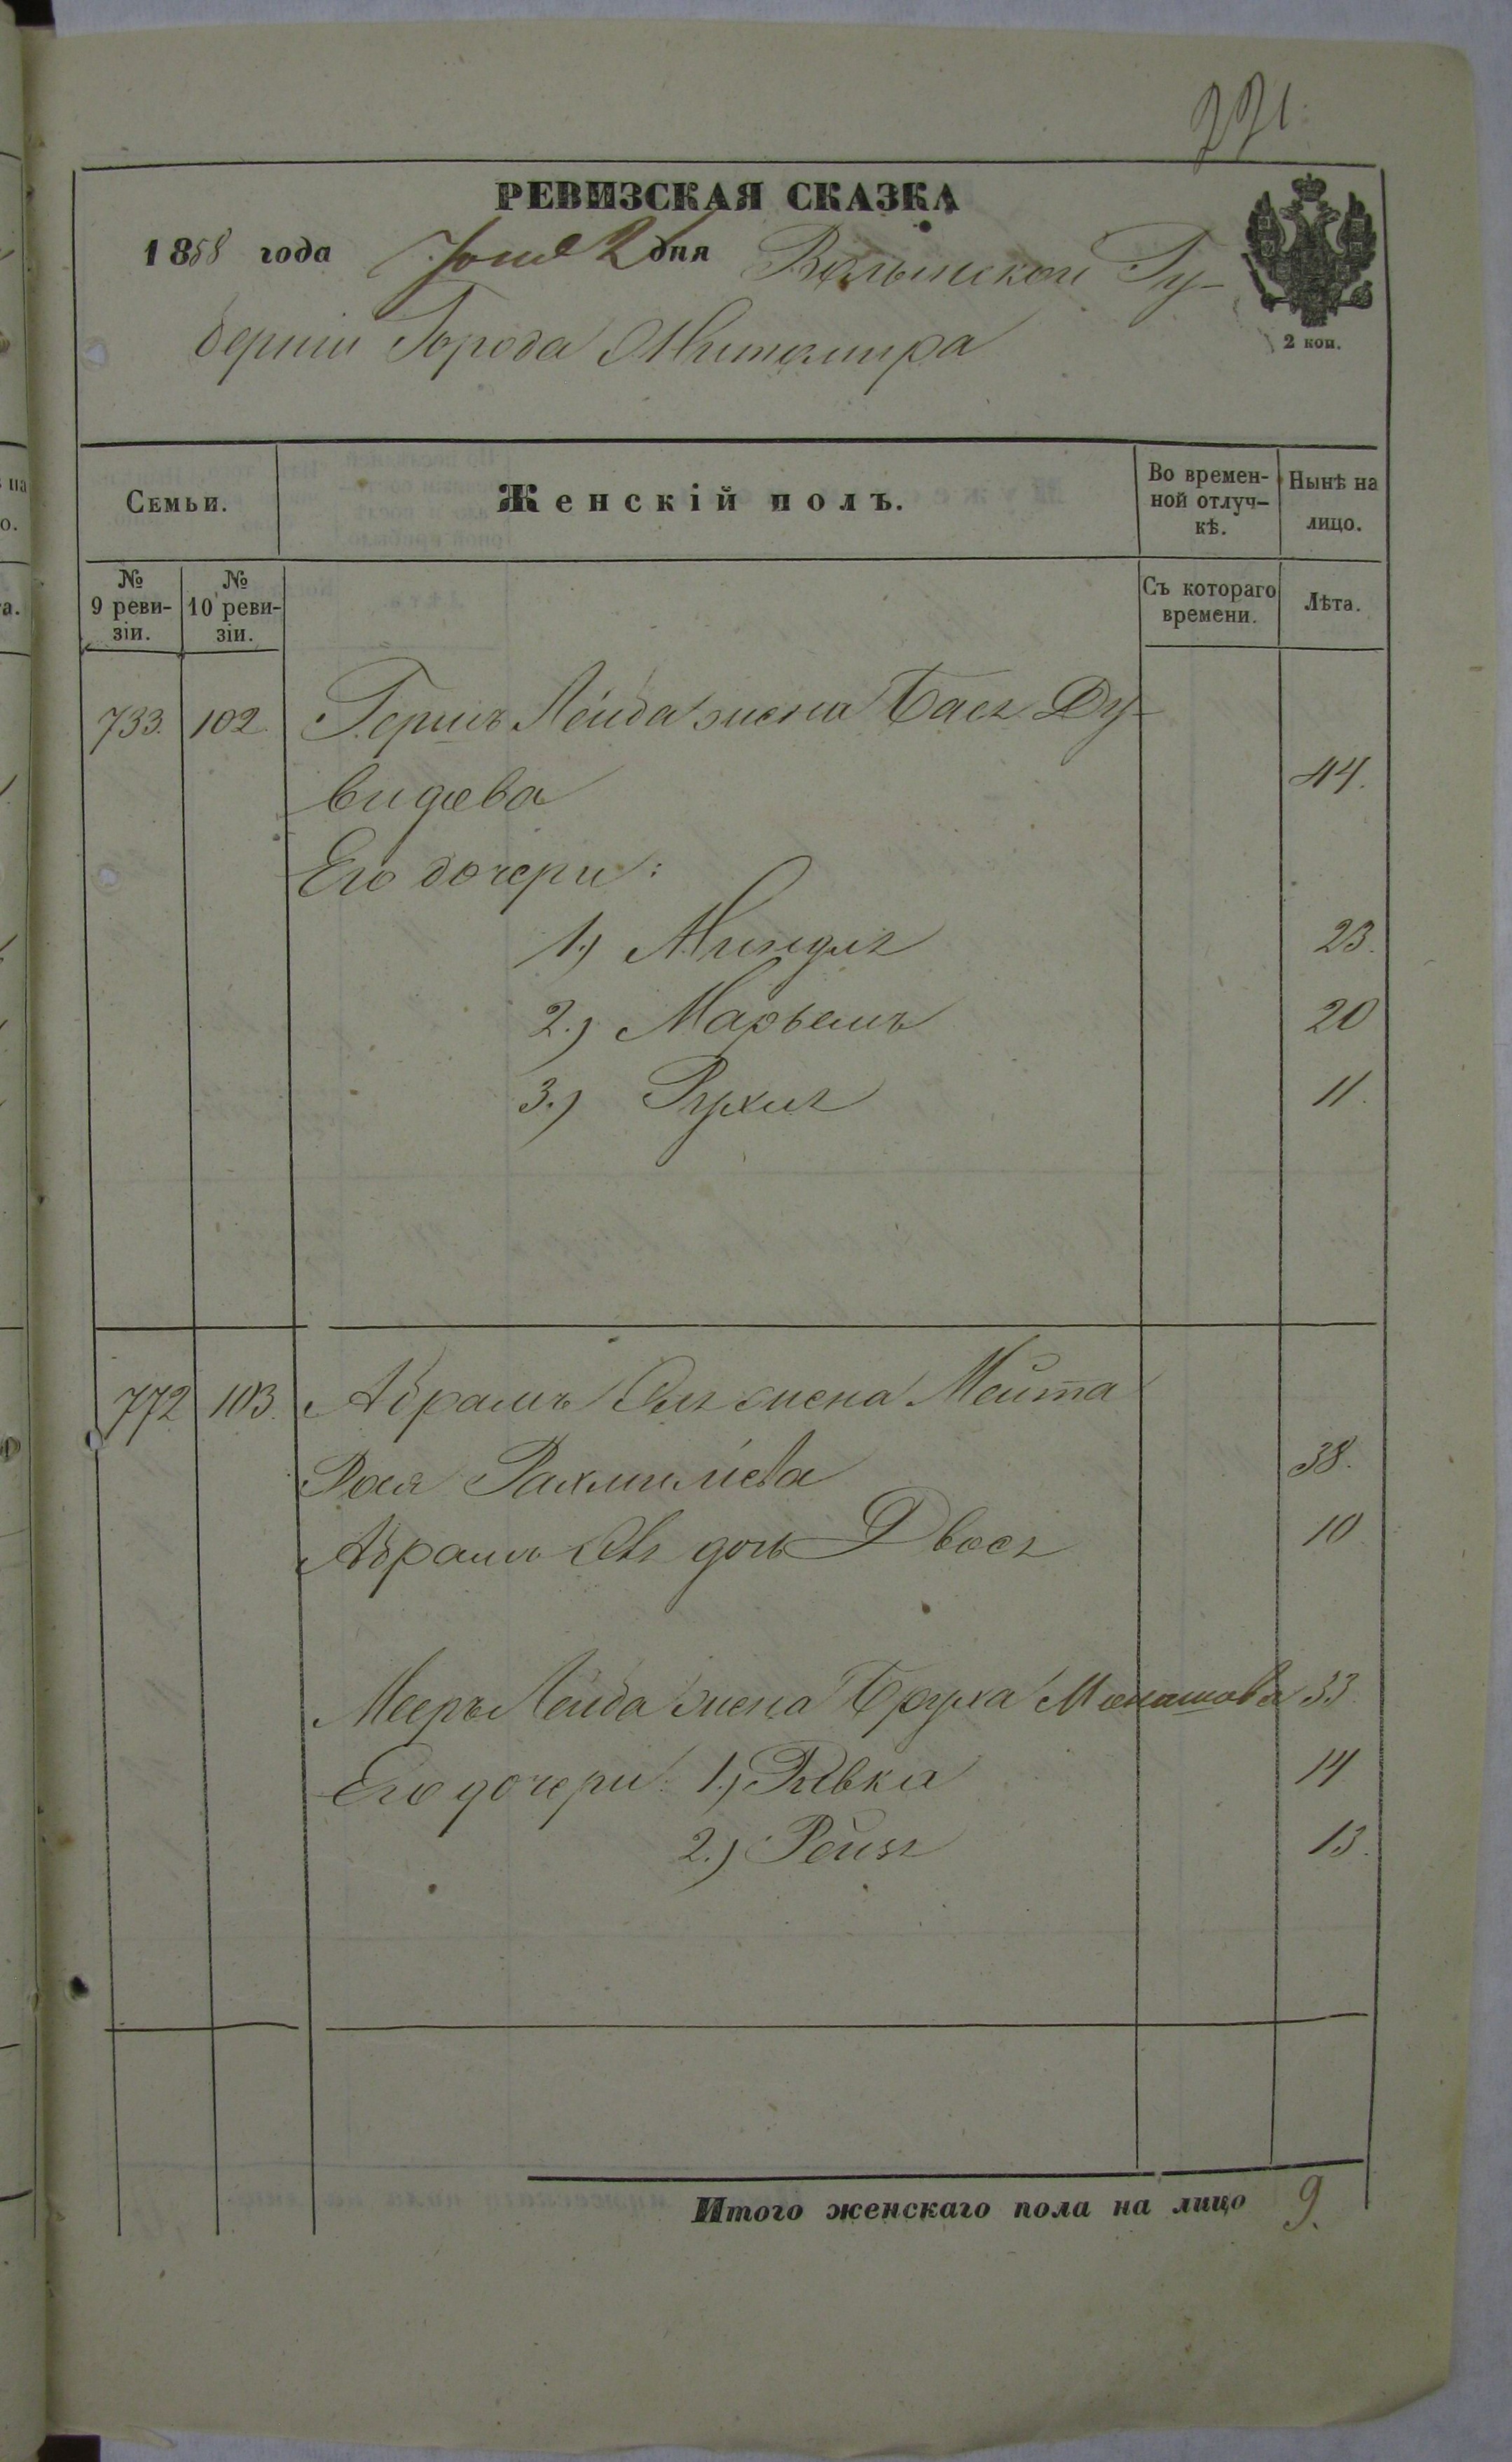 271.
РЕВИЗСКАЯ СКАЗКА
1858 года Іюня 2 дня Волынской Гу-
берніи Города Житомира
2 коп.
Семьи.
Женскій полъ.
Во времен-
ной отлуч-
кѣ.
Нынѣ на
лицо.
№
9 реви-
зіи.
№
10 реви-
зіи.
Съ котораго
времени.
Лѣта.
733. 102. Гершъ Лейба жена Бася Ду-
видова 44.
Его дочери:
1.) Миндля 23.
2.) Марьемъ 20
3.) Рухля 11.
772 103. Абрамъ жена Мейта
Рося Рахмиліева 38.
Абрамъ дочь Двося 10
Мееръ Лейба жена Бруха Монашова 33
Его дочери: 1.) Рывка 14
2.) Рейзя 13.
Итого женскаго пола на лицо 9.